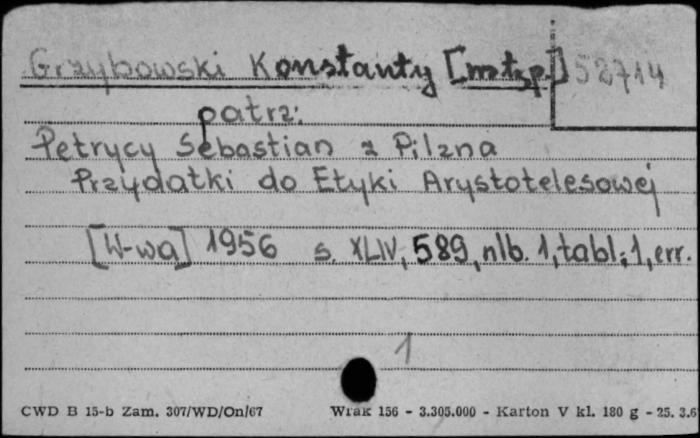 Grzybowski Konstanty [wstęp.] 52714
patrz:
Petrycy Sebastian z Pilzna
Przydatki do Etyki Arystotelesowej
[W-wa] 1956 s. XLIV, 589, nlb. 1, tabl. 1, err.
1
CWD B 15-b Zam. 307/WD/On/67 Wrak 156 - 3.305.000 - Karton V kl. 180 g - 25. 3.6